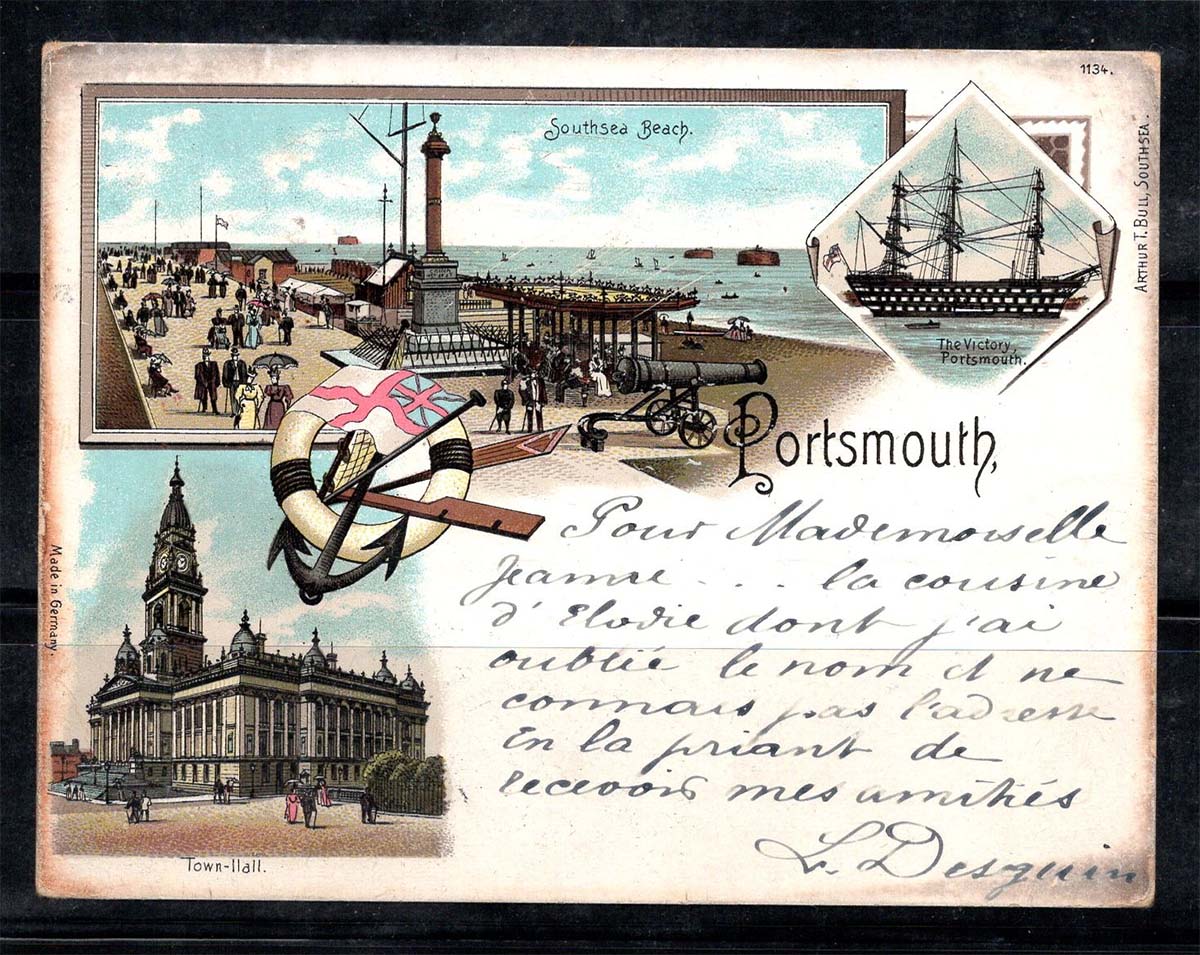 1134.
Southsea Beach.
ARTHUR T. BULL, SOUTHSEA.
The Victory
Portsmouth.
Portsmouth,
Pour Mademoiselle
Jeanne . . . la cousine
d'Elodie dont j'ai
oublié le nom et ne
connais pas l'adresse
En la priant de
recevoir mes amitiés
L. Desguin
Made in Germany.
Town-Hall.